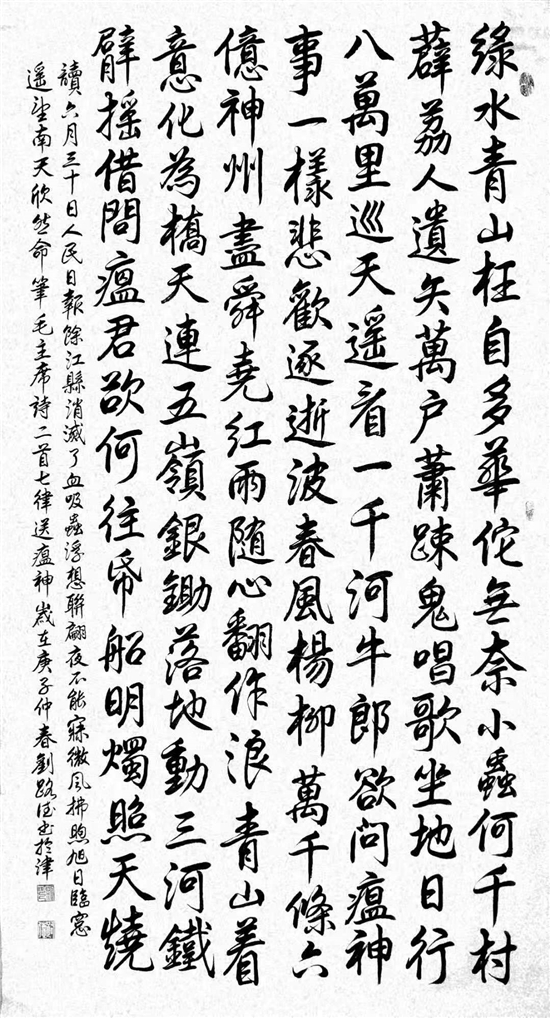 綠水青山枉自多華佗無奈小蟲何千村
薜荔人遺矢萬戶蕭疎鬼唱歌坐地日行
八萬里巡天遥看一千河牛郎欲问瘟神
事一樣悲歡逐逝波春風楊柳萬千條六
億神州盡舜堯紅雨随心翻作浪青山着
意化為橋天連五嶺銀鋤落地動三河鐵
臂摇借問瘟君欲何往帋船明燭照天燒
讀六月三十日人民日報餘江縣消滅了血吸蟲浮想聯翩夜不能寐微風拂煦旭日臨窗
遥望南天欣然命筆毛主席詩二首七律送瘟神歲在庚子仲春劉路書於津